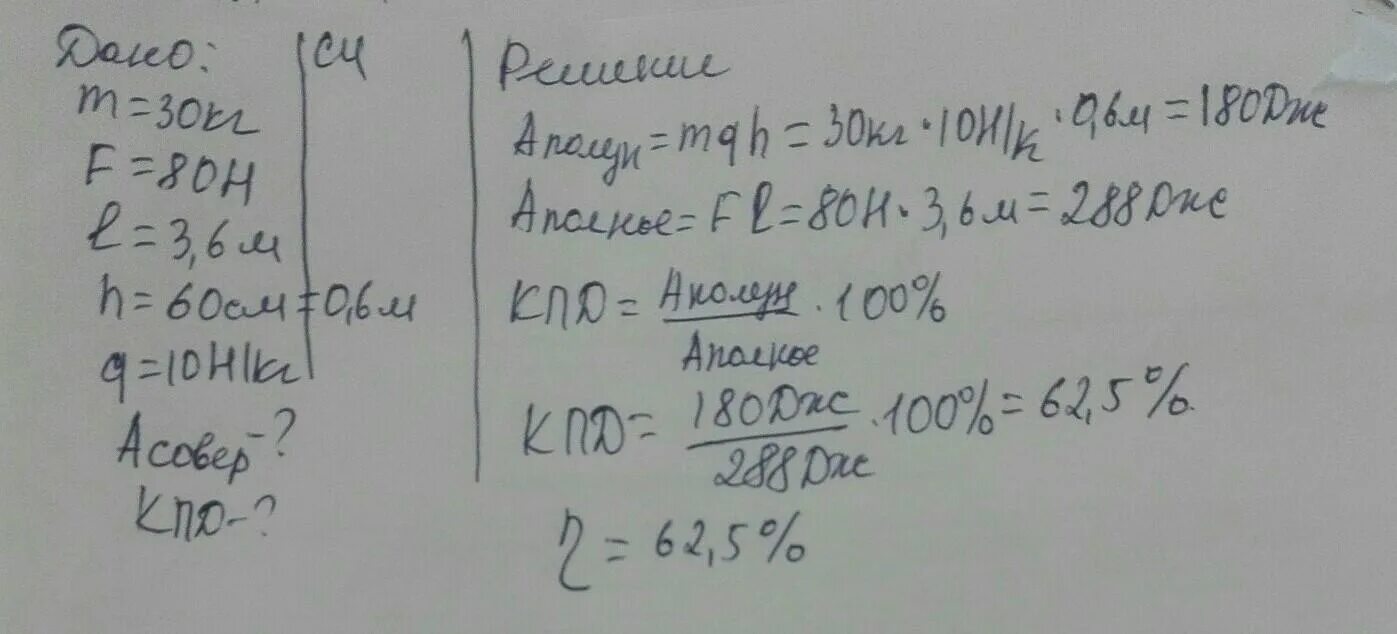 Дано:
m = 30кг
F = 80Н
l = 3,6м
h = 60см = 0,6м
g = 10Н/кг
Асовер - ?
КПД - ?
СИ
Решение
Аполезн = mgh = 30кг · 10Н/к · 0,6м = 180Дж
Аполное = Fl = 80Н · 3,6м = 288Дж
КПД = Аполезн / Аполное · 100%
КПД = 180Дж / 288Дж · 100% = 62,5%.
η = 62,5%